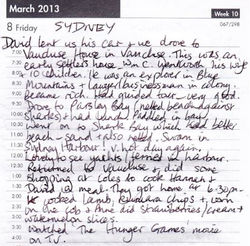 March 2013
Week 10
8 Friday
067/298
SYDNEY
David lent us his car & we drove to
Vaucluse House in Vaucluse. This was an
early settlers house, Wm C. Wentworth, his wife
& 10 children. He was an explorer in Blue
Mountains & lawyer/businessman in colony &
became rich. Had guided tour. Very hot.
Drove to Parsley Bay (netted beach against
sharks) & had lunch. Paddled in bay,
Went on to Sharks Bay which had better
beach & sand & also netted. Swam in
Sydney harbour. V. hot day again.
Lovely to see yachts, ferries in harbour.
Returned to Vaucluse & did some
shopping at Coles to cook Hannah &
David a meal. They got home at 6-30pm.
cooked lamb, kumara chips & corn
on the cob & Anne did strawberries/cream &
watermelon slices.
Watched The Hunger Games movie
on TV.